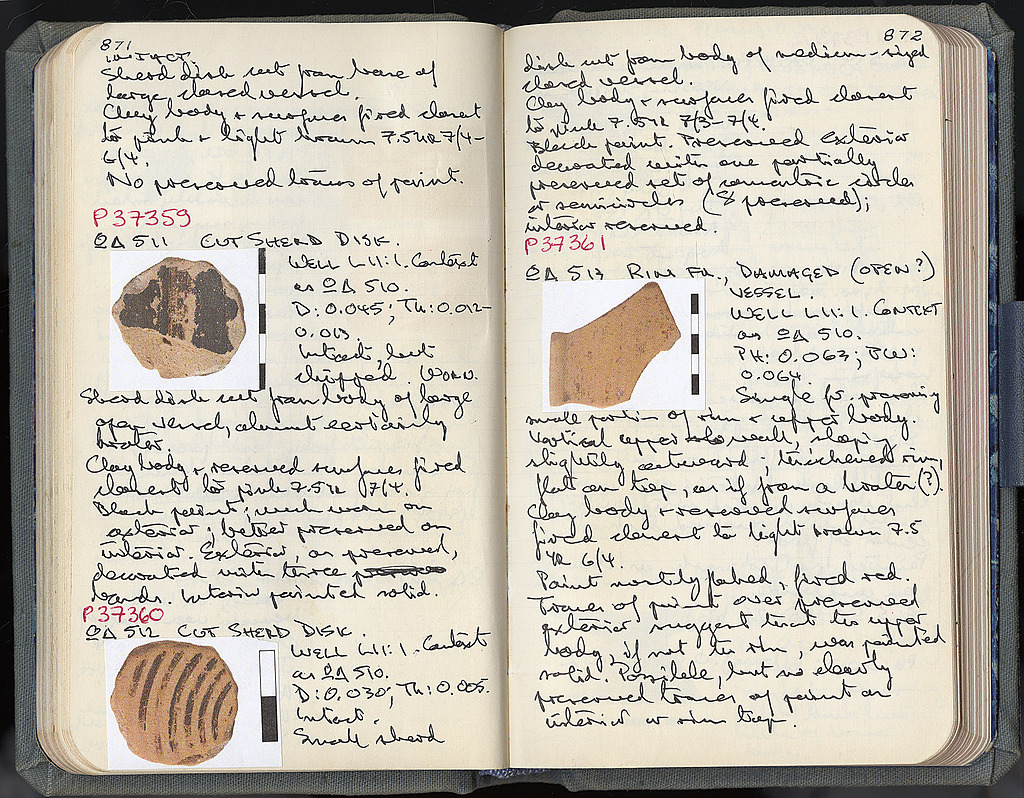 871
INTACT.
Sherd disk cut from base of
large, closed vessel.
Clay body + surfaces fired closest
to pink + light brown 7.5YR 7/4-
6/4.
No preserved traces of paint.
P 37359
ΩΔ 511 CUT SHERD DISK.
WELL L11:1. Context
as ΩΔ 510.
D: 0.045; Th: 0.012-
0.013
Intact, but
chipped. Worn.
Sherd disk cut from body of large
open vessel, almost certainly
krater.
Clay body + reserved surfaces fired
closest to pink 7.5YR 7/4.
Black paint; much worn on
exterior; better preserved on
interior. Exterior, as preserved,
decorated with thrice
bands. Interior painted solid.
P 37360
ΩΔ 512 CUT SHERD DISK.
WELL L11:1. Context
as ΩΔ 510.
D: 0.030; Th: 0.005.
Intact.
Small sherd
872
disk cut from body of medium-sized
closed vessel.
Clay body + surfaces fired closest
to pink 7.5YR 7/3-7/4.
Black paint. Preserved exterior
decorated with one partially
preserved set of concentric circles
or semicircles (8 preserved);
interior reserved.
P 37361
ΩΔ 513 RIM FR., DAMAGED (OPEN?)
VESSEL.
WELL L11:1. CONTEXT
as ΩΔ 510.
PH: 0.063; PW:
0.064
Single fr. preserving
small portion of rim + upper body.
Vertical upper wall, sloping
slightly outward; thickened rim,
flat on top, as if from a krater (?).
Clay body + reserved surfaces
fired closest to light brown 7.5
YR 6/4.
Paint mostly flaked, fired red.
Traces of paint over preserved
exterior suggest that the upper
body, if not the rim, was painted
solid. Possible, but no clearly
preserved traces of paint on
interior or rim top.